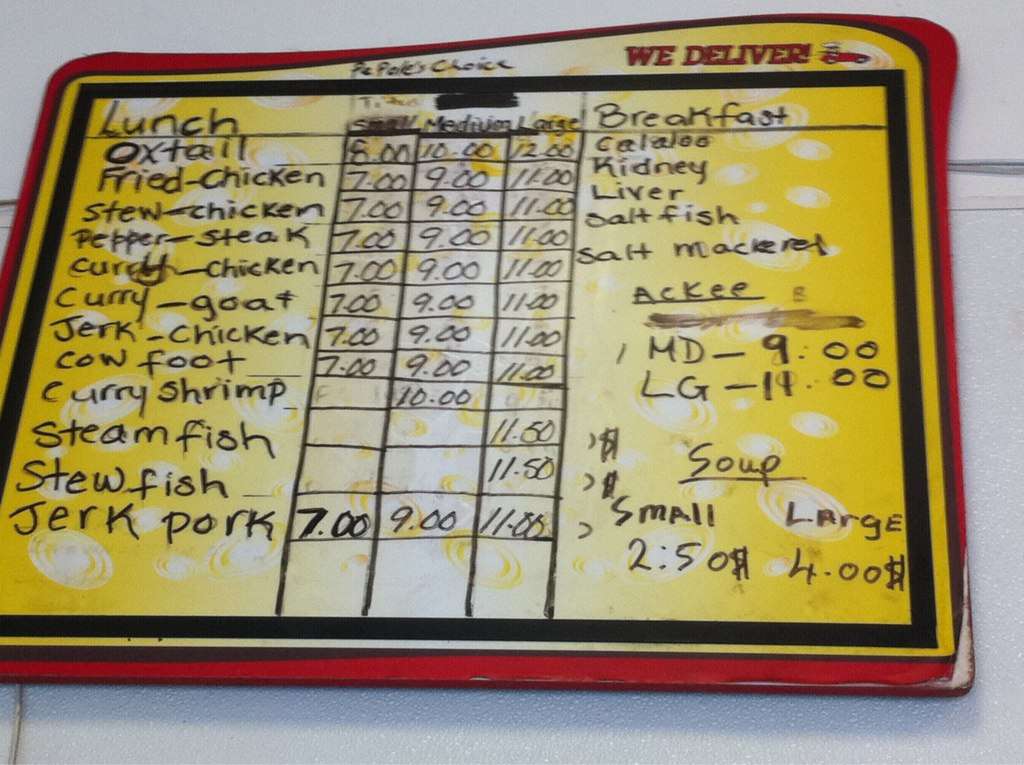 WE DELIVER!
PePole's Choice
Lunch Small Medium Large
Oxtail 8.00 10.00 12.00
Fried-Chicken 7.00 9.00 11.00
Stew-chicken 7.00 9.00 11.00
Pepper-Steak 7.00 9.00 11.00
Curry-chicken 7.00 9.00 11.00
Curry-goat 7.00 9.00 11.00
Jerk-Chicken 7.00 9.00 11.00
Cow foot 7.00 9.00 11.00
Curry Shrimp 10.00
Steam fish 11.50
Stew fish 11.50
Jerk pork 7.00 9.00 11.00
Breakfast
Calaloo
Kidney
Liver
Salt fish
Salt mackerel
Ackee
MD-9.00
LG-11.00
Soup
Small Large
2:50$ 4.00$